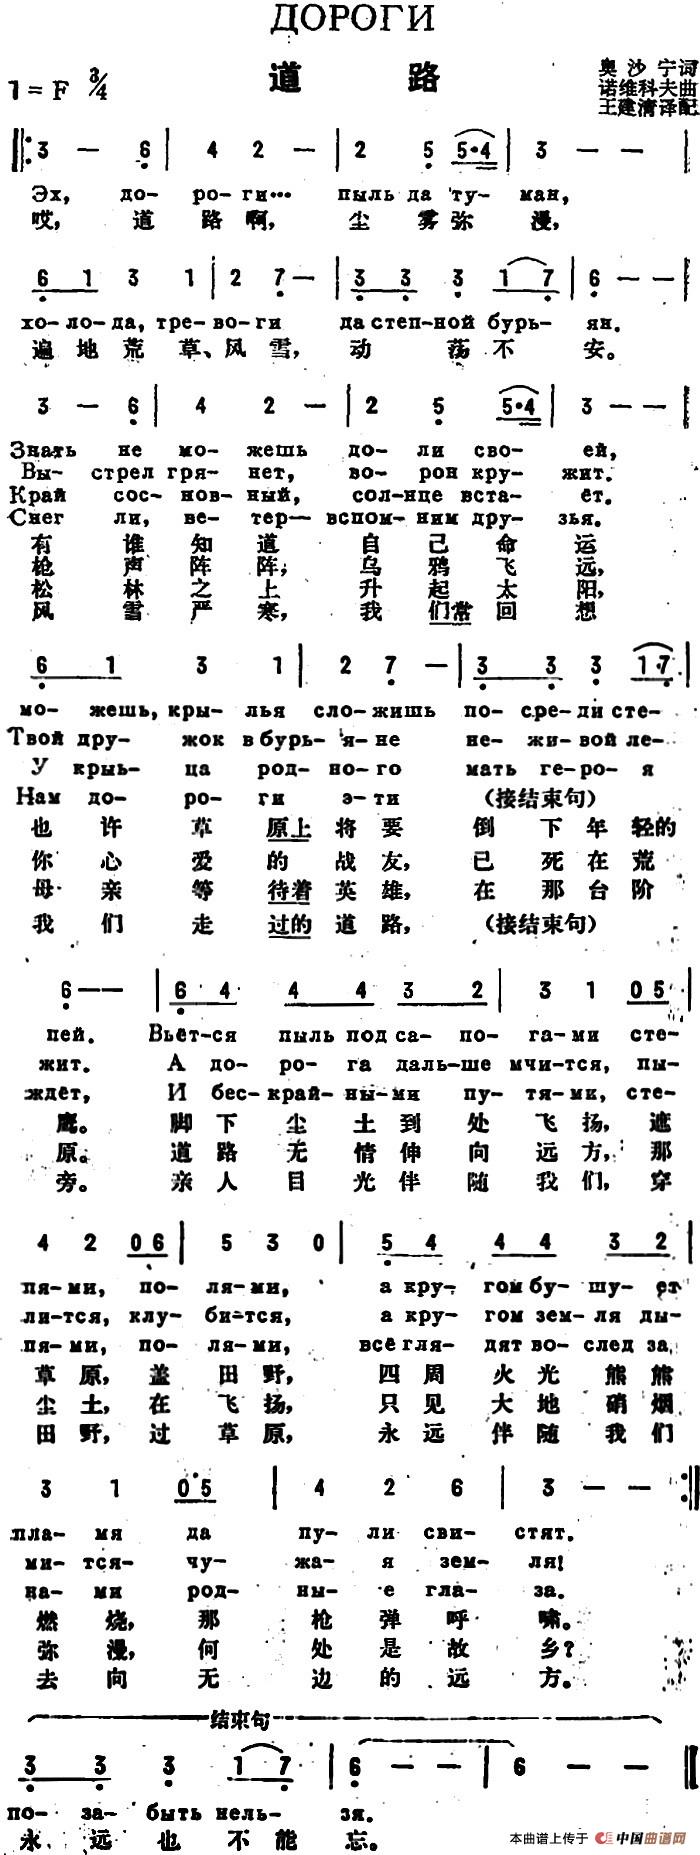 ДОРОГИ
道 路
1 = F 3/4
奥沙宁词
诺维科夫曲
王建清译配
3 — 6 | 4 2 — | 2 5 5·4 | 3 — —
Эх, до- ро- ги··· пыль да ту- ман,
哎, 道 路 啊, 尘 雾 弥 漫,
6 1 3 1 | 2 7 — | 3 3 3 1 7 | 6 — —
хо-ло-да, тре-во-ги да степ-ной бурь-ян.
遍 地 荒 草、风 雪, 动 荡 不 安。
3 — 6 | 4 2 — | 2 5 5·4 | 3 — —
Знать не мо- жешь до- ли сво- ей,
Вы- стрел гря- нет, во- рон кру- жит.
Край сос- нов- ный, сол-нце вста- ёт.
Снег ли, ве- тер— вспом- ним дру- зья.
有 谁 知 道 自 己 命 运
枪 声 阵 阵, 乌 鸦 飞 远,
松 林 之 上 升 起 太 阳,
风 雪 严 寒, 我 们常 回 想
6 1 3 1 | 2 7 — | 3 3 3 1·7
мо- жешь, кры- лья сло- жишь по- сре- ди сте-
Твой дру- жок в бурь- я- не не- жи- вой ле-
У крыь- ца род- но- го мать ге- ро- я
Нам до- ро- ги э- ти (接结束句)
也 许 草 原上 将 要 倒 下 年 轻的
你 心 爱 的 战 友, 已 死 在 荒
母 亲 等 待着 英 雄, 在 那 台 阶
我 们 走 过的 道 路, (接结束句)
6 — — | 6 4 4 4 3 2 | 3 1 0 5
пей. Вьёт-ся пыль под са- по- га- ми сте-
жит. А до- ро- га даль-ше мчит-ся, пы-
ждёт, И бес- край- ны- ми пу- тя- ми, сте-
鹰。 脚 下 尘 土 到 处 飞 扬, 遮
原。 道 路 无 情 伸 向 远 方, 那
旁。 亲 人 目 光 伴 随 我 们, 穿
4 2 0 6 | 5 3 0 | 5 4 4 4 3 2
пя- ми, по- ля- ми, а кру- гом бу- шу- ет
лит-ся, клу- бит-ся, а кру- гом зем- ля ды-
пя- ми, по- ля- ми, всё гля- дят во- след за,
草 原, 盖 田 野, 四 周 火 光 熊 熊
尘 土, 在 飞 扬, 只 见 大 地 硝 烟
田 野, 过 草 原, 永 远 伴 随 我 们
3 1 0 5 | 4 2 6 | 3 — —
пла- мя да пу- ли сви- стят.
ми- тся- чу- жа- я зем- ля!
на- ми род- ны- е гла- за.
燃 烧, 那 枪 弹 呼 啸。
弥 漫, 何 处 是 故 乡?
去 向 无 边 的 远 方。
结束句
3 3 3 1 7 | 6 — — | 6 — —
по- за- быть нель- зя.
永 远 也 不 能 忘。
本曲谱上传于 中国曲谱网